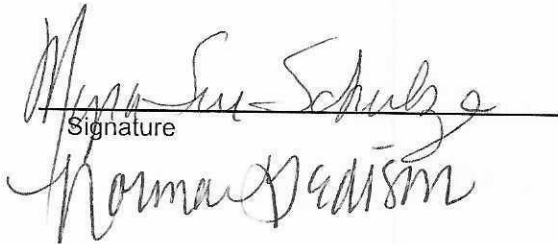 Myna Sue Schulze
Signature
Norma Dedison